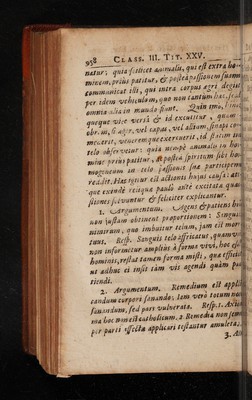 938 CLASS. III. TIT. XXV.
natur: quia scilicet animalis, qui est extra ho-
minem, prius patitur, & postea passionem suam
communicat illi, qui intra corpus agri degit
per idem vehiculum, quo non tantum hæc, sed
omnia alia in mundo fiunt. Quin imò,
queque vice versâ & id excutitur, quam
obrem, si æger, vel capax, vel alium,
mearat, venenumque exerverit, id statim in
telo observetur: quia nempè animalis in ho-
mine prius patitur, & postea spiritum sibi ho-
mogeneum in telo passionis suæ participem
reddit. Hæc igitur est actionis hujus causa: at-
que exinde reliqua paulò antè excitata quæ-
stiones solvuntur & feliciter explicantur.
1. Argumentum. Agens & patiens hic
non justam obtinent proportionem: Sanguis
nimirum, quo imbuitur telum, jam est mor-
tuus. Resp. Sanguis telo affricatus, quamvis
non informetur ampliùs à forma vivi, hoc est,
hominis, restat tamen forma misti, qua efficit
ut adhuc ei insit tàm vis agendi quàm pa-
tiendi.
2. Argumentum. Remedium est appli-
candum corpori sanando: Jam verò totum non
sanandum, sed pars vulnerata. Resp. 1. Axio-
ma hoc non est catholicum. 2. Remedia non sem-
per parti affectæ applicari testantur amuleta.
3. Ar-